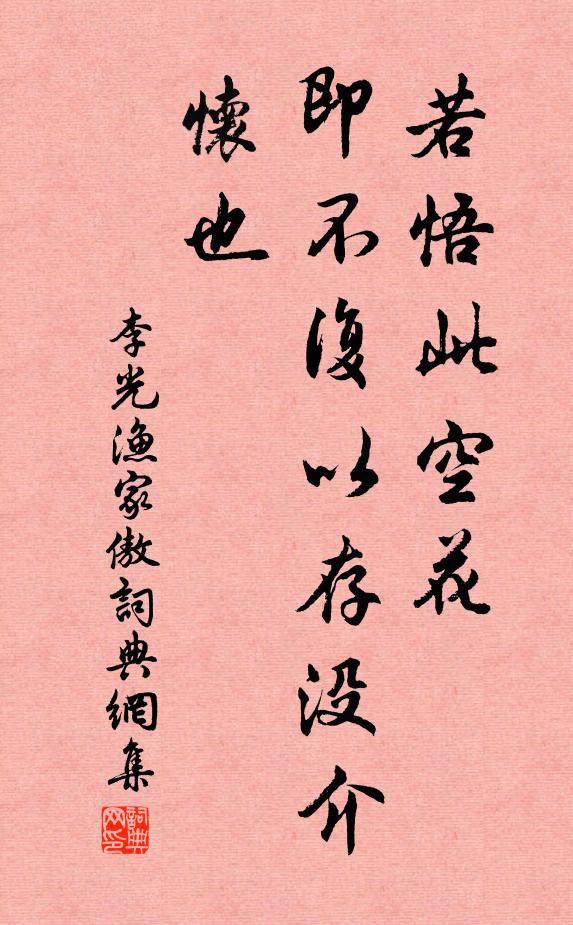 若悟此空花
即不復以存没介
懷也
李光漁家傲詞典網集
詞典网印